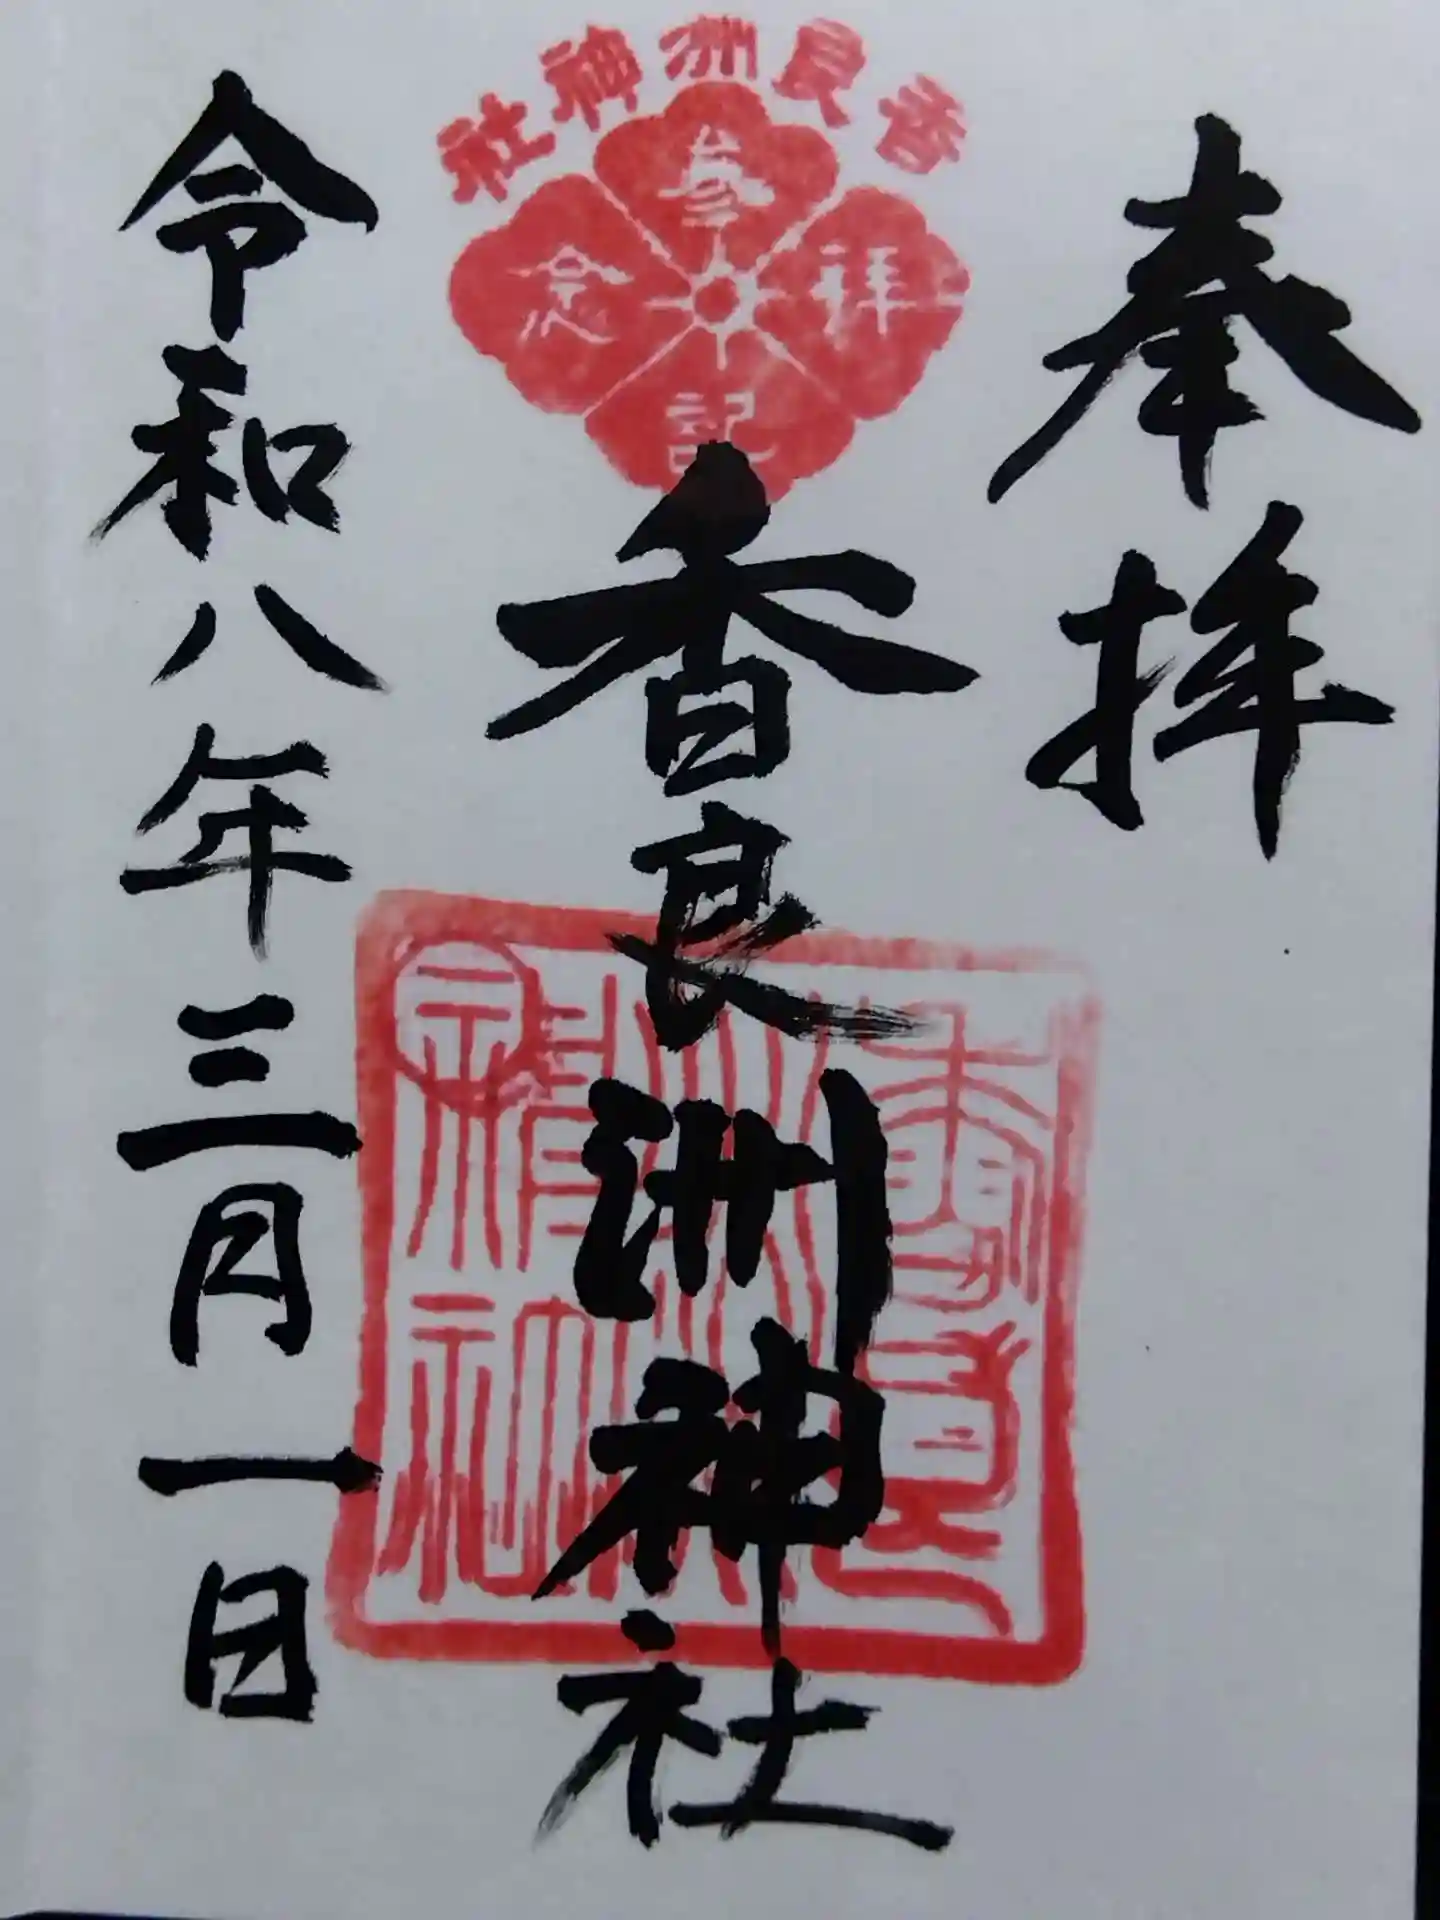 奉拝
香良洲神社
参拝記念
香良洲神社
令和八年三月一日